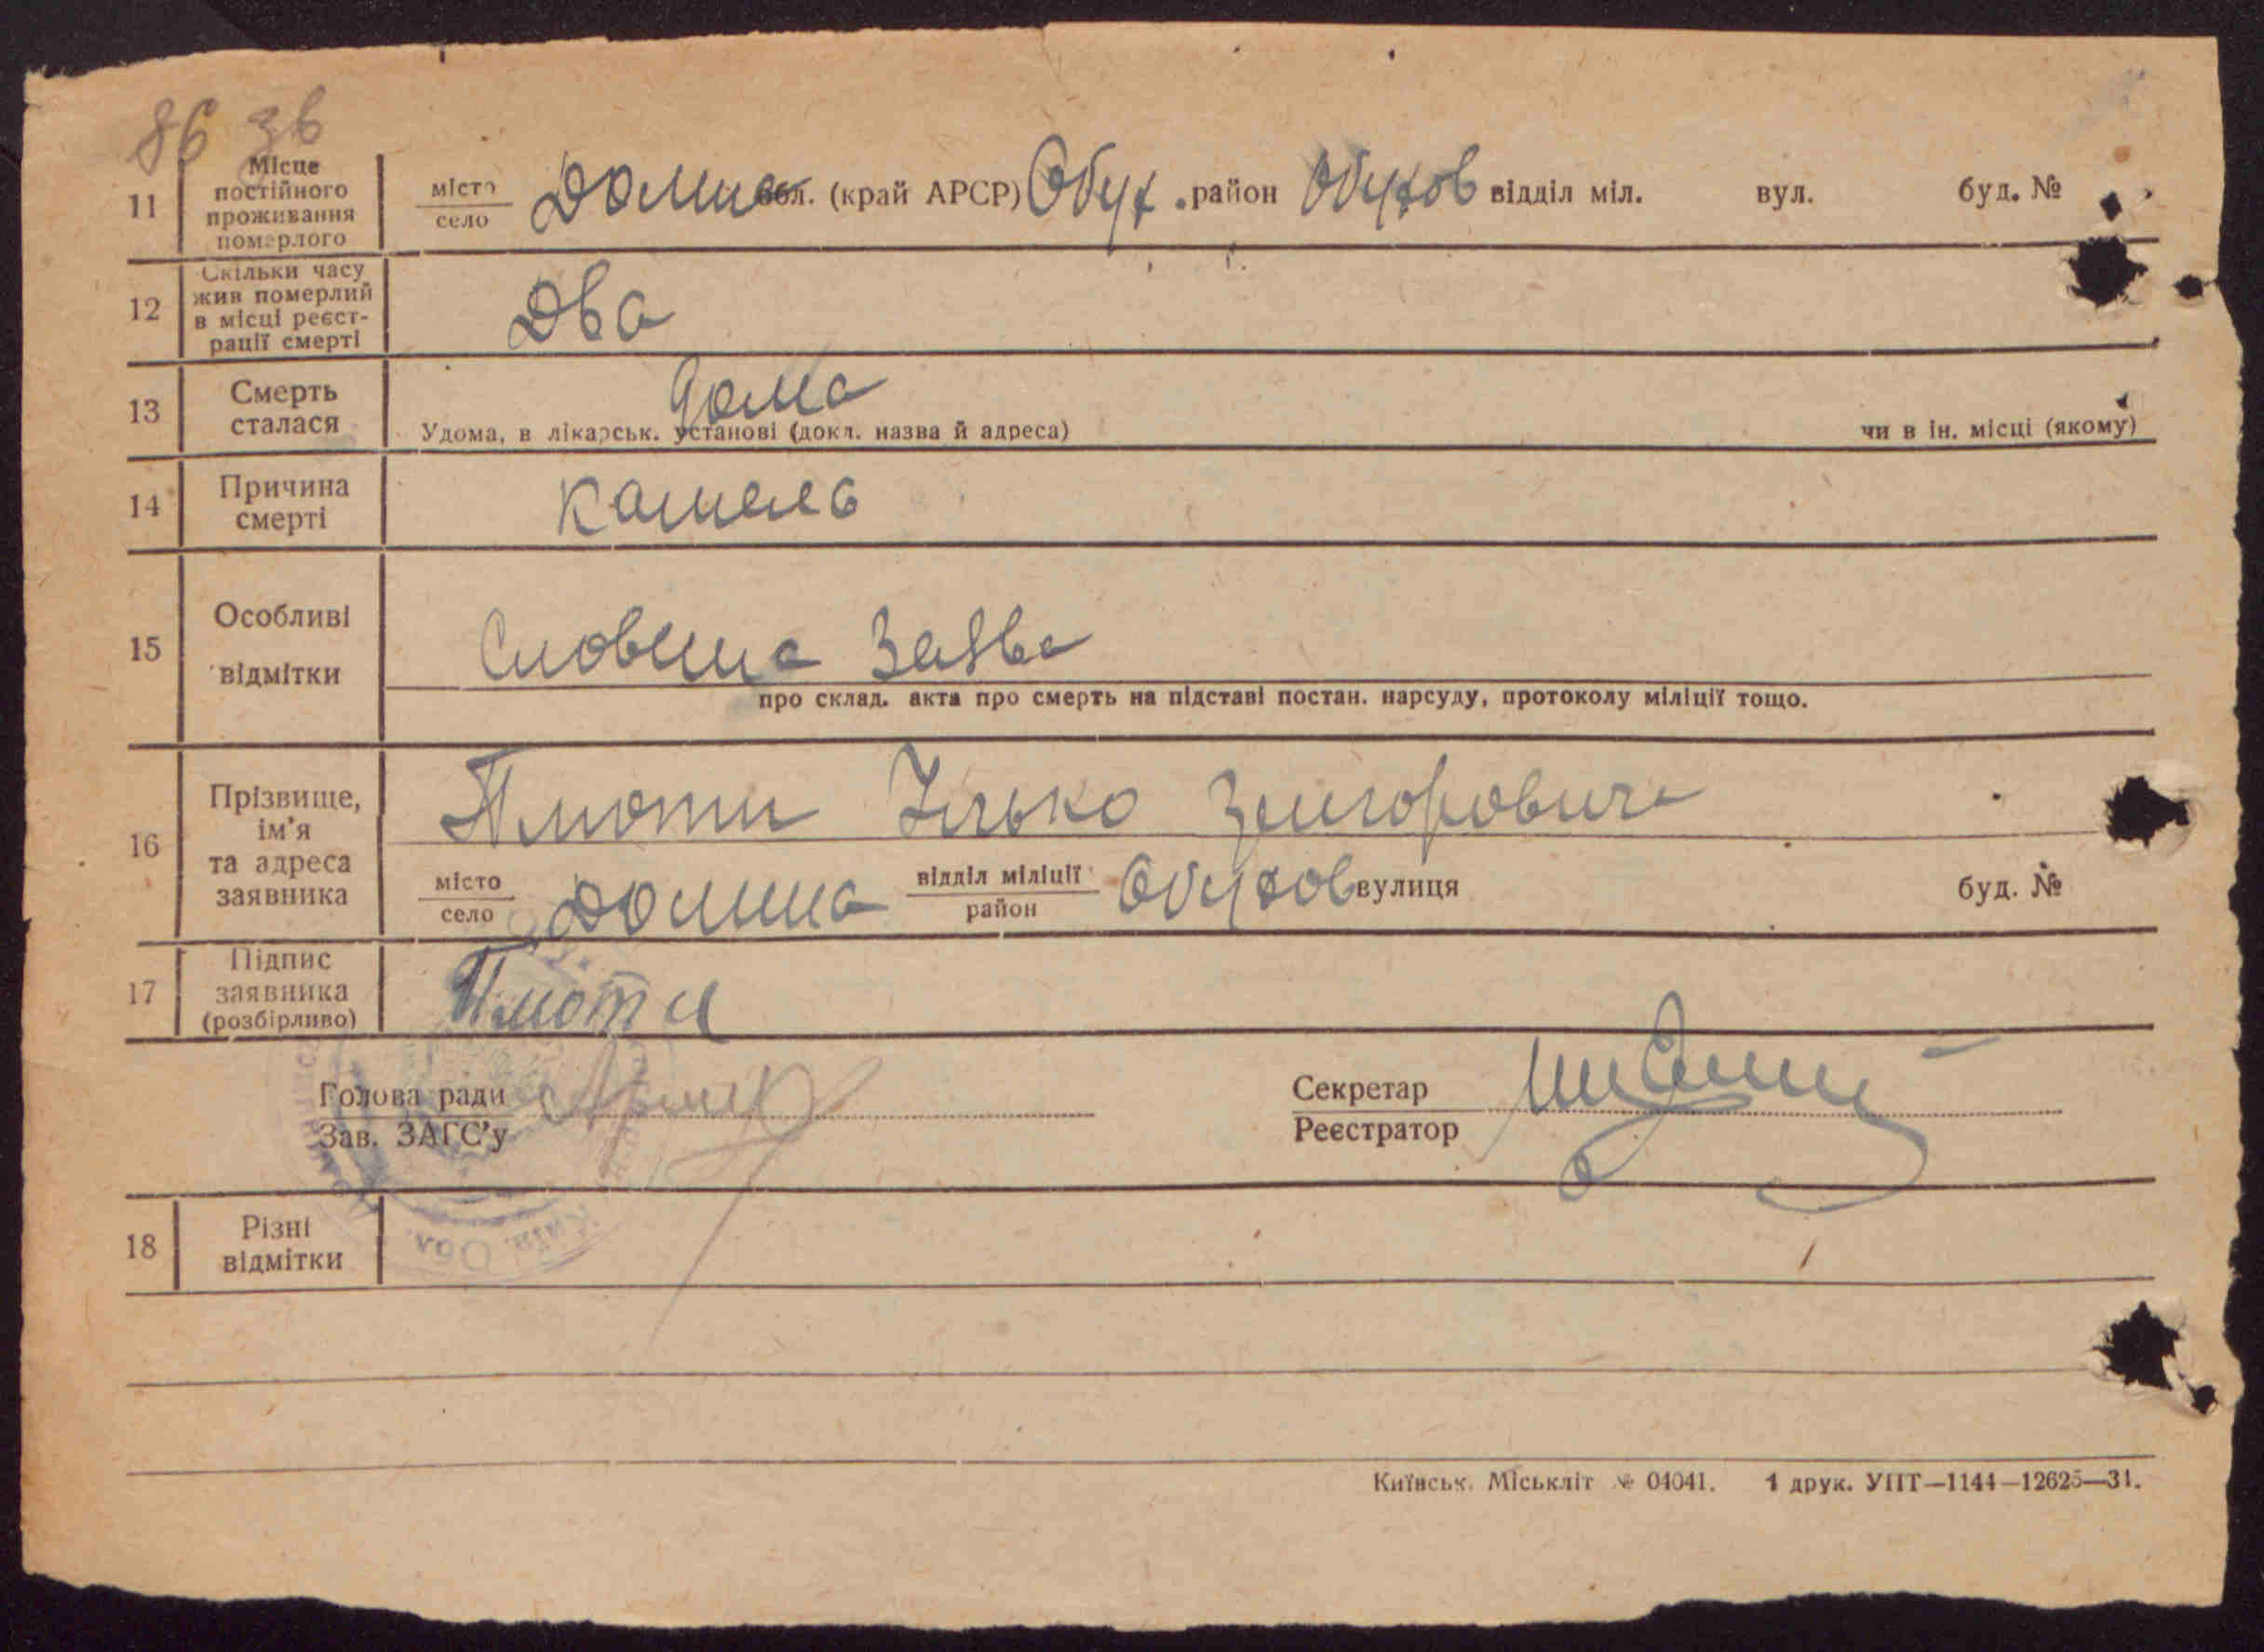 86 зв
11 Місце постійного проживання померлого місто село Долина обл. (край АРСР) Обух. район Обухов відділ міл. вул. буд. №
12 Скільки часу жив померлий в місці реєстрації смерті Два
13 Смерть сталася дома
Удома, в лікарськ. установі (докл. назва й адреса) чи в ін. місці (якому)
14 Причина смерті кашель
15 Особливі відмітки Словесна Заява
про склад. акта про смерть на підставі постан. нарсуду, протоколу міліції тощо.
16 Прізвище, ім'я та адреса заявника
місто село Долина відділ міліції район Обухов вулиця буд. №
17 Підпис заявника (розбірливо)
Голова ради Секретар
Зав. ЗАГС'у Реєстратор
Київ. Обл.
18 Різні відмітки
Київськ. Міськліт № 04041. 1 друк. УПТ—1144—12625—31.